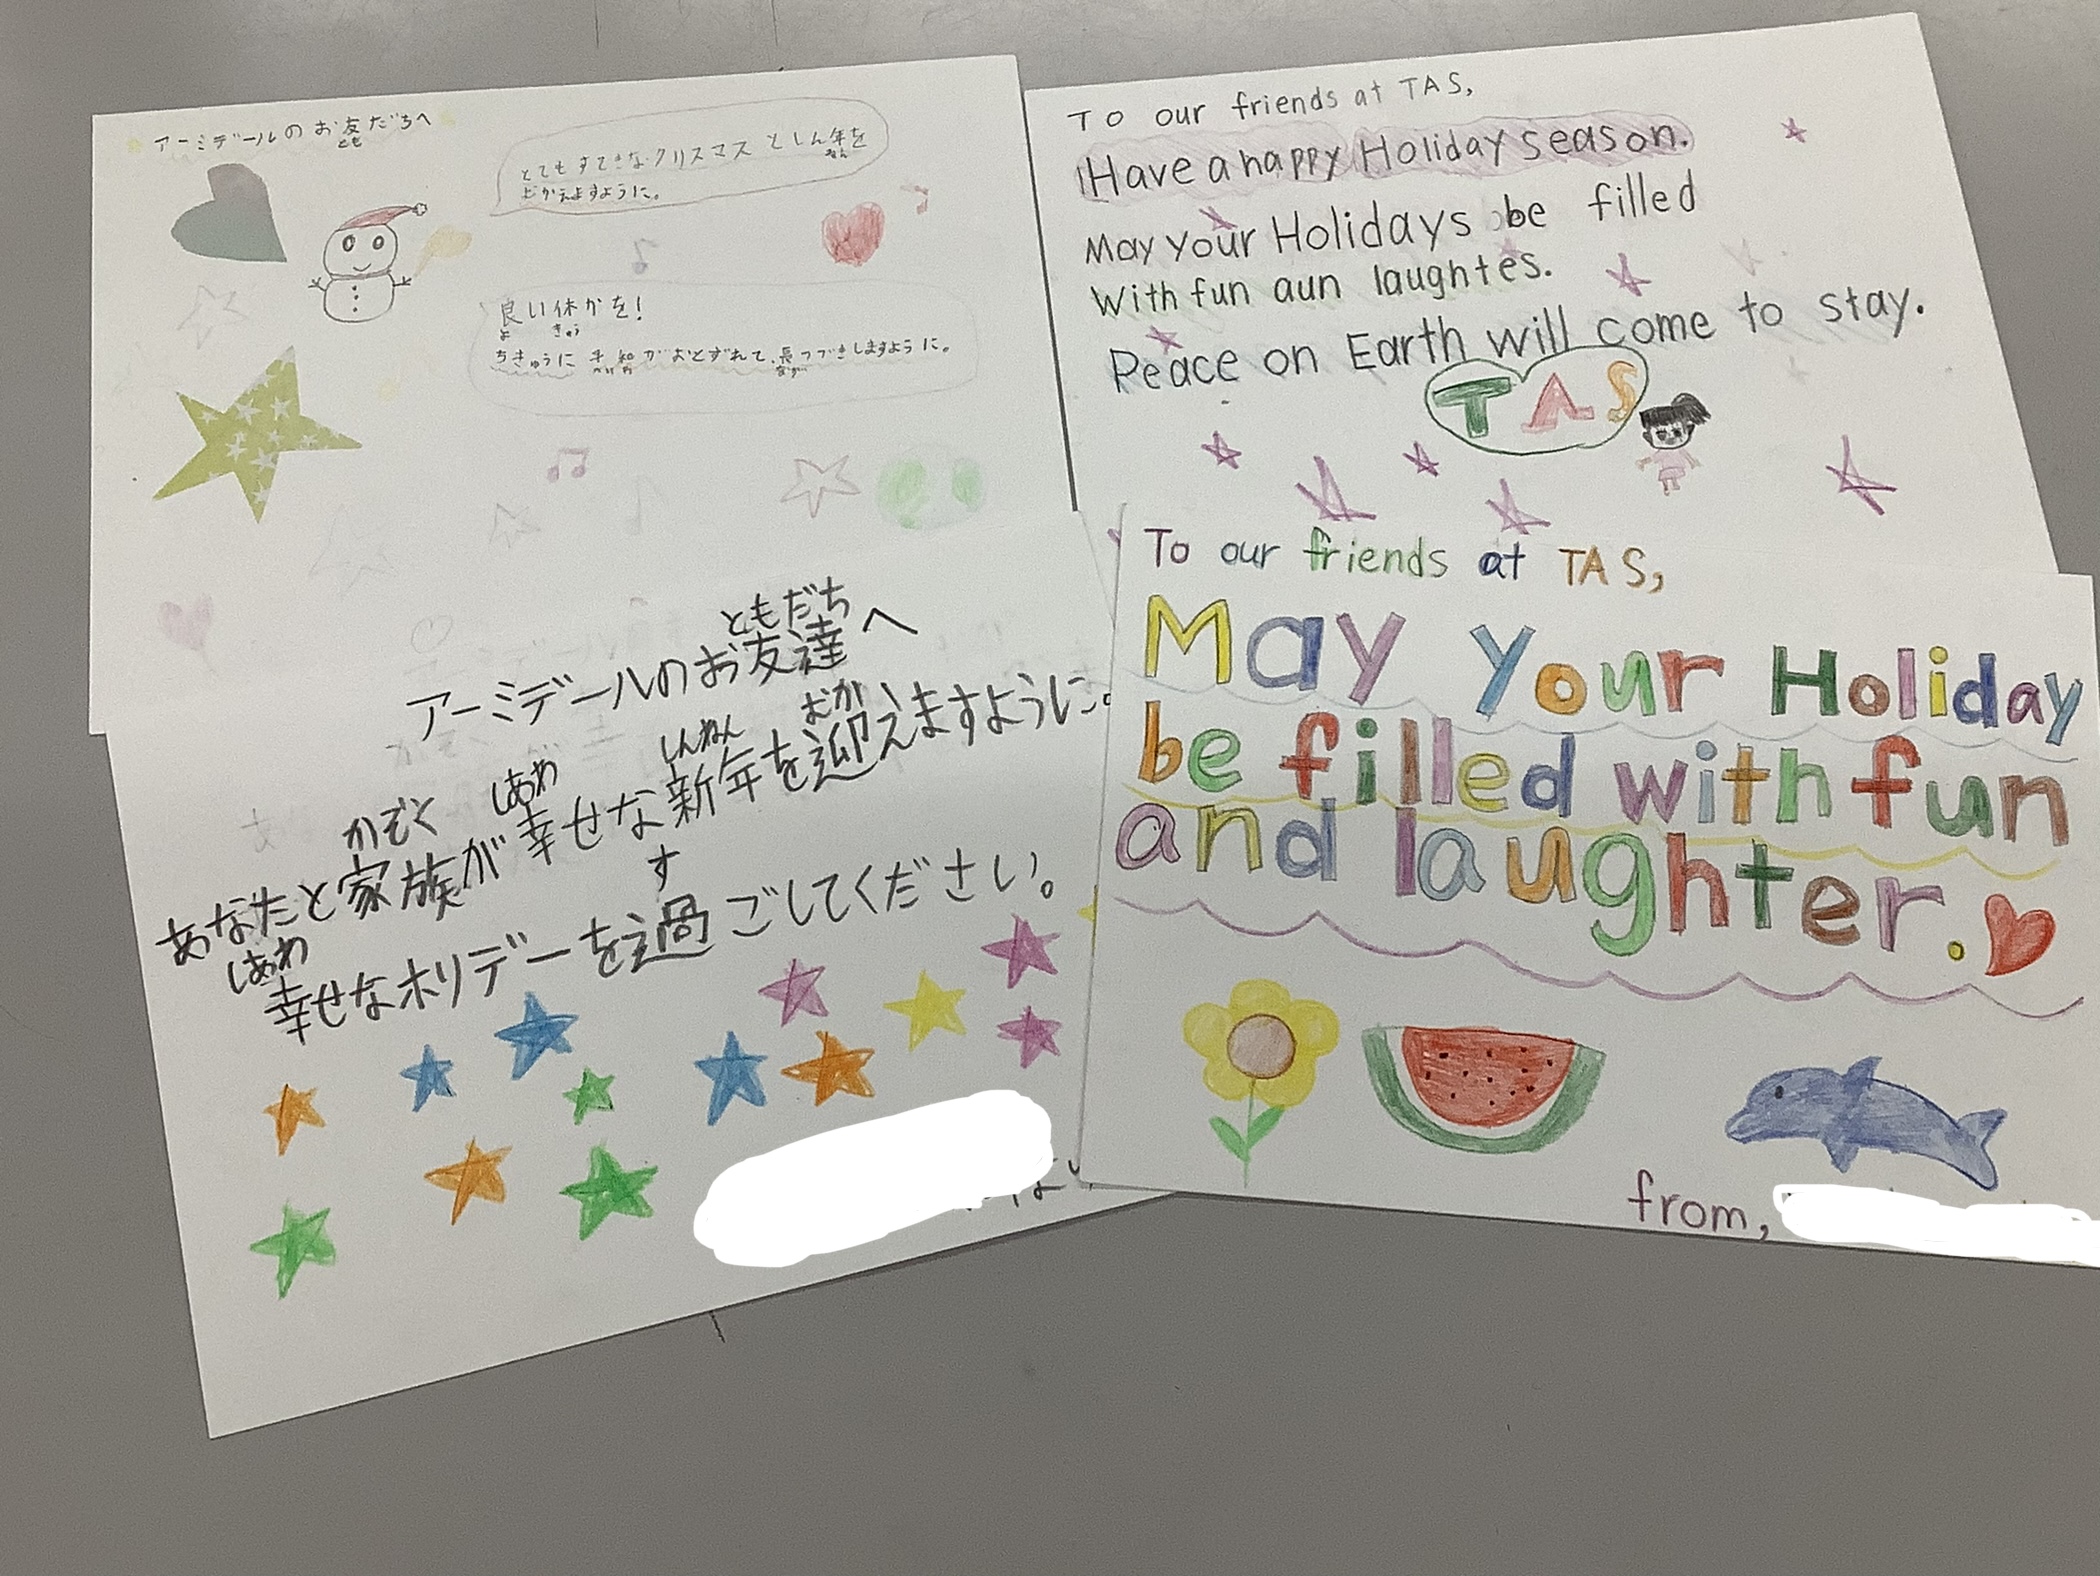 アーミデールのお友だちへ
とも
とてもすてきなクリスマスとしん年を
ねん
むかえますように。
良い休かを!
よ きゅう
ちきゅうに平和がおとずれて、長つづきしますように。
へい わ なが
To our friends at TAS,
Have a happy Holiday season.
May your Holidays be filled
With fun aun laughtes.
Peace on Earth will come to stay.
TAS
ともだち
アーミデールのお友達へ
かぞく しあわ しんねん むか
あなたと家族が幸せな新年を迎えますように。
しあわ す
幸せなホリデーを過ごしてください。
To our friends at TAS,
May your Holiday
be filled with fun
and laughter.
from,